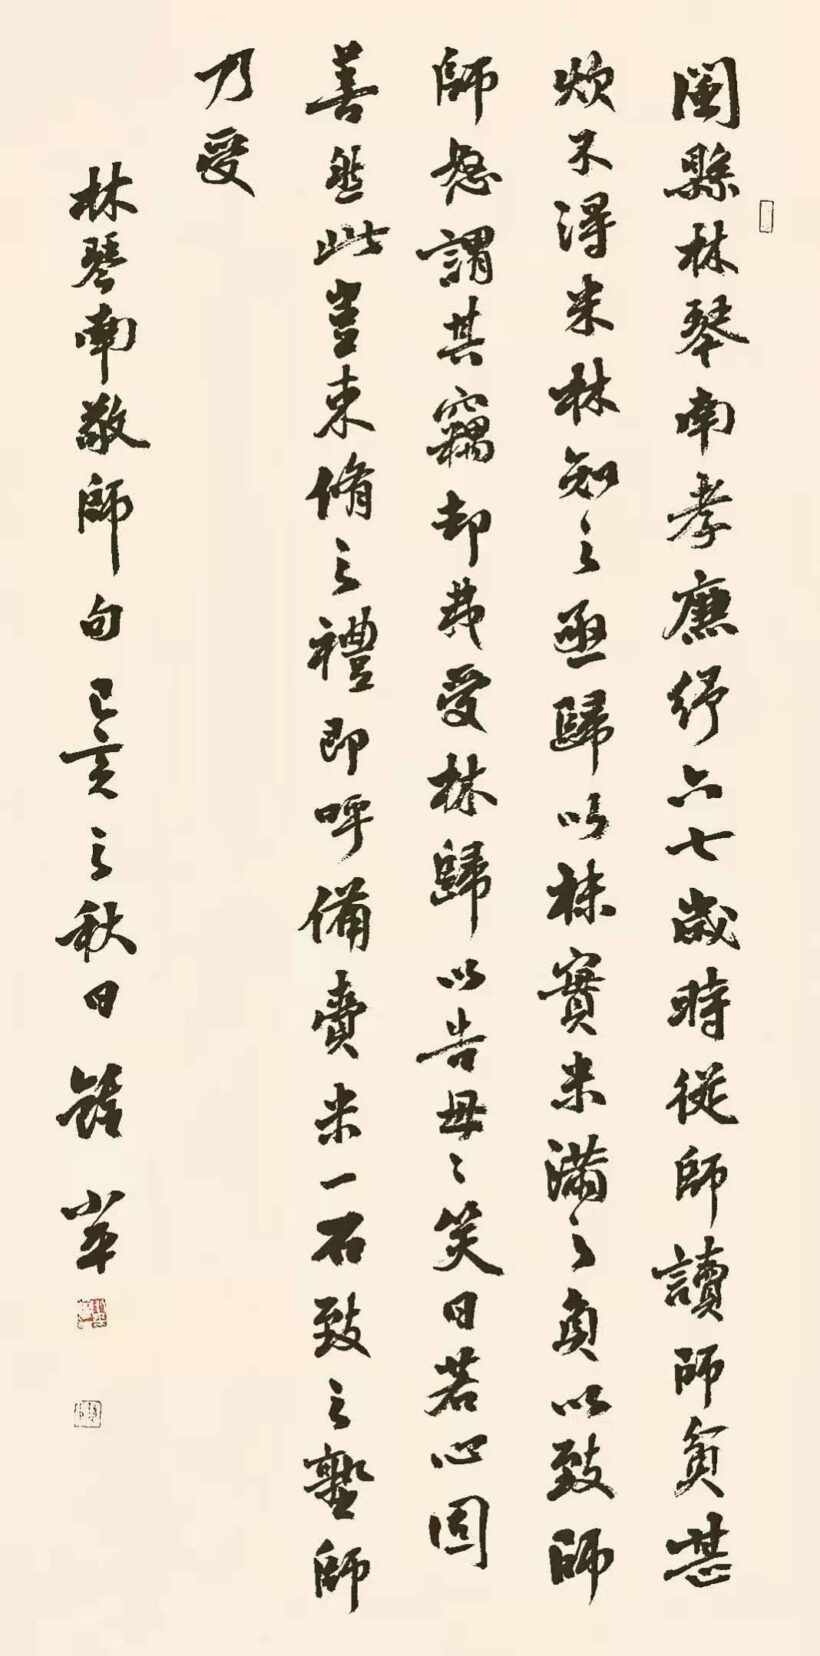 閩縣林琴南孝廉紓六七歲時從師讀師貧甚
炊不得米林知之亟歸以袜實米滿之負以致師
師怒謂其竊却弗受林歸以告母〻笑曰若心固
善然此豈束脩之禮即呼備賫米一石致之塾師
乃受
林琴南敬師句己亥之秋日鍾